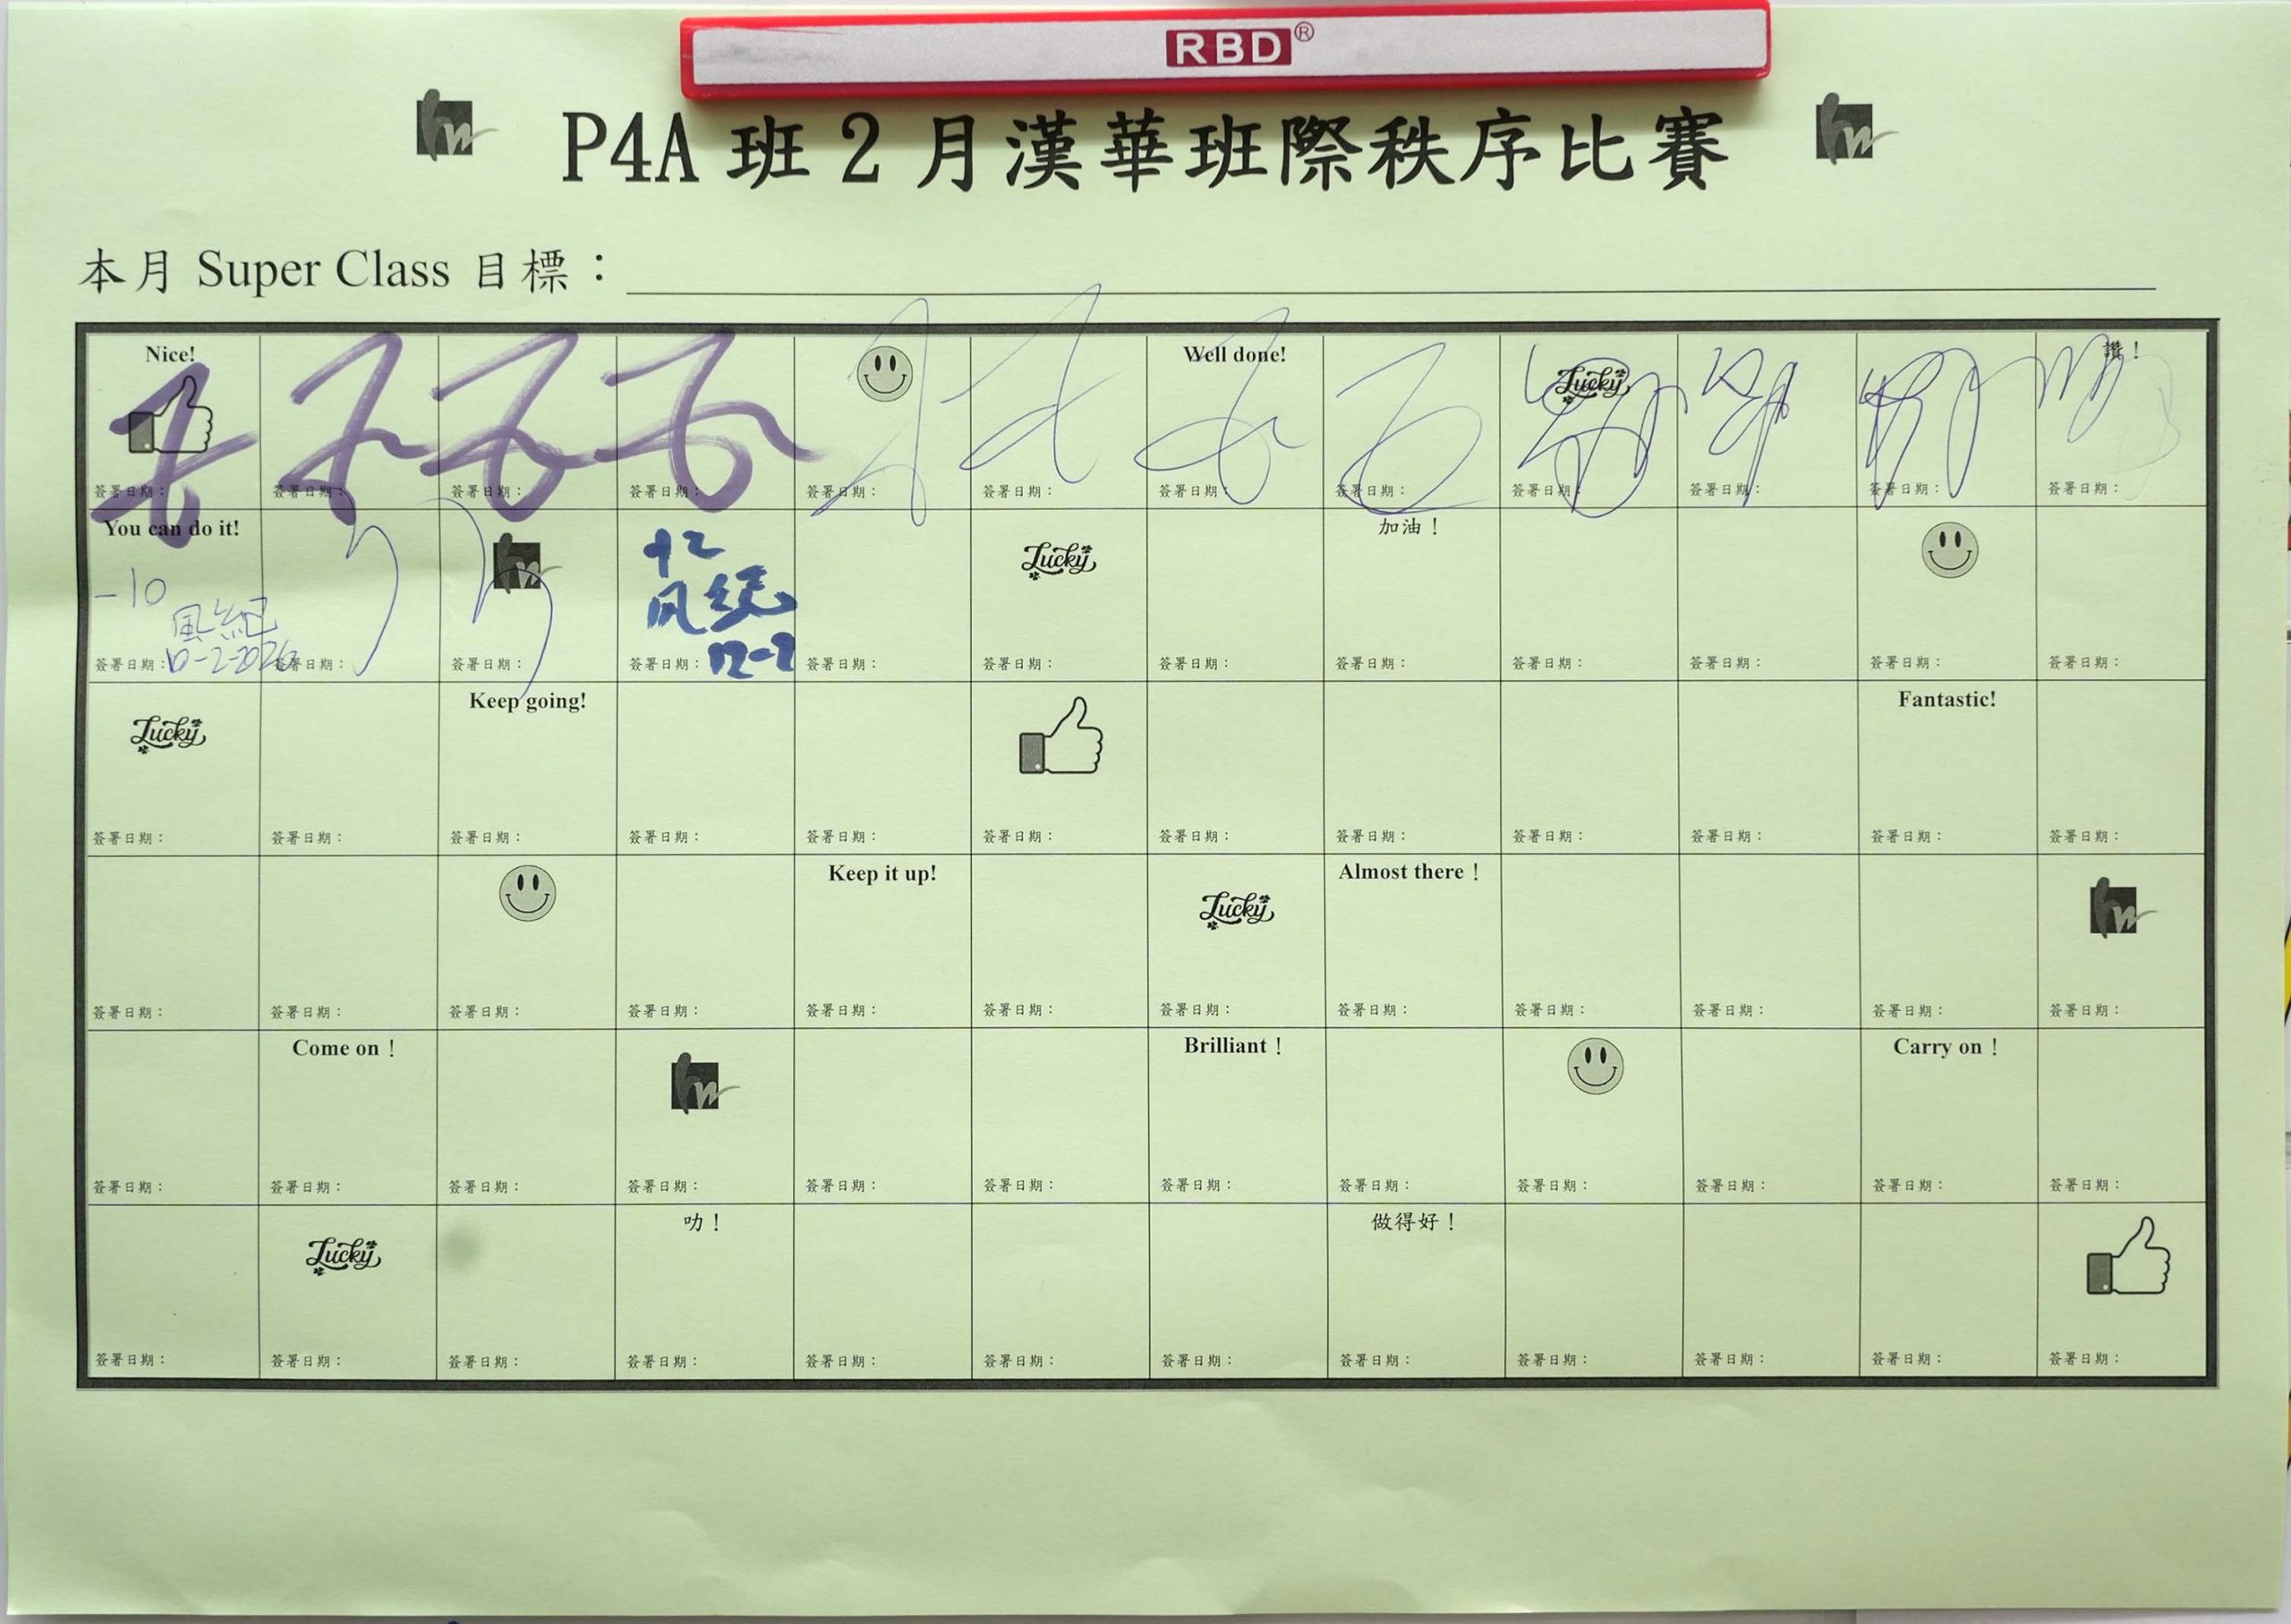 RBD®
P4A 班 2 月漢華班際秩序比賽
本月 Super Class 目標：
Nice! Well done! Lucky 讚！
簽署日期： 簽署日期： 簽署日期： 簽署日期： 簽署日期： 簽署日期： 簽署日期： 簽署日期： 簽署日期： 簽署日期： 簽署日期： 簽署日期：
You can do it! hw +2 Lucky 加油！
-10 風紀
風紀
簽署日期：10-2-2026 簽署日期： 簽署日期： 簽署日期：12-2 簽署日期： 簽署日期： 簽署日期： 簽署日期： 簽署日期： 簽署日期： 簽署日期： 簽署日期：
Lucky Keep going! Fantastic!
簽署日期： 簽署日期： 簽署日期： 簽署日期： 簽署日期： 簽署日期： 簽署日期： 簽署日期： 簽署日期： 簽署日期： 簽署日期： 簽署日期：
Keep it up! Lucky Almost there！ hw
簽署日期： 簽署日期： 簽署日期： 簽署日期： 簽署日期： 簽署日期： 簽署日期： 簽署日期： 簽署日期： 簽署日期： 簽署日期： 簽署日期：
Come on！ hw Brilliant！ Carry on！
簽署日期： 簽署日期： 簽署日期： 簽署日期： 簽署日期： 簽署日期： 簽署日期： 簽署日期： 簽署日期： 簽署日期： 簽署日期： 簽署日期：
Lucky 叻！ 做得好！
簽署日期： 簽署日期： 簽署日期： 簽署日期： 簽署日期： 簽署日期： 簽署日期： 簽署日期： 簽署日期： 簽署日期： 簽署日期： 簽署日期：